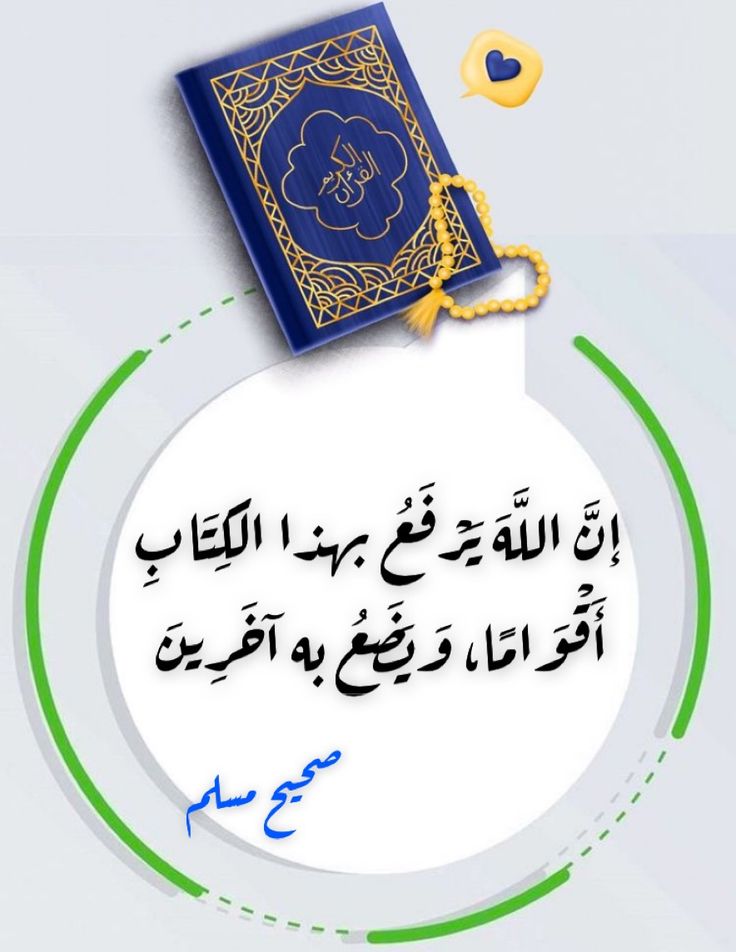 القرآن
الكريم
إِنَّ اللَّهَ يَرْفَعُ بهذا الكِتَابِ
أَقْوَامًا، وَيَضَعُ به آخَرِينَ
صحيح مسلم